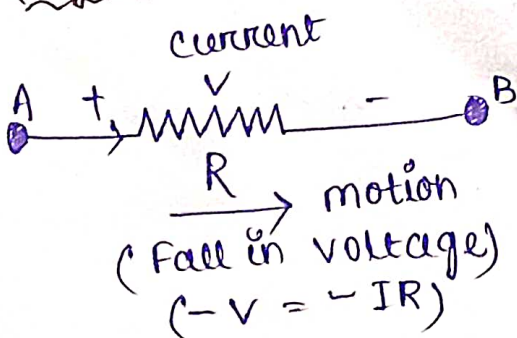 current
V
A + - B
R
motion
(Fall in voltage)
(-V = -IR)